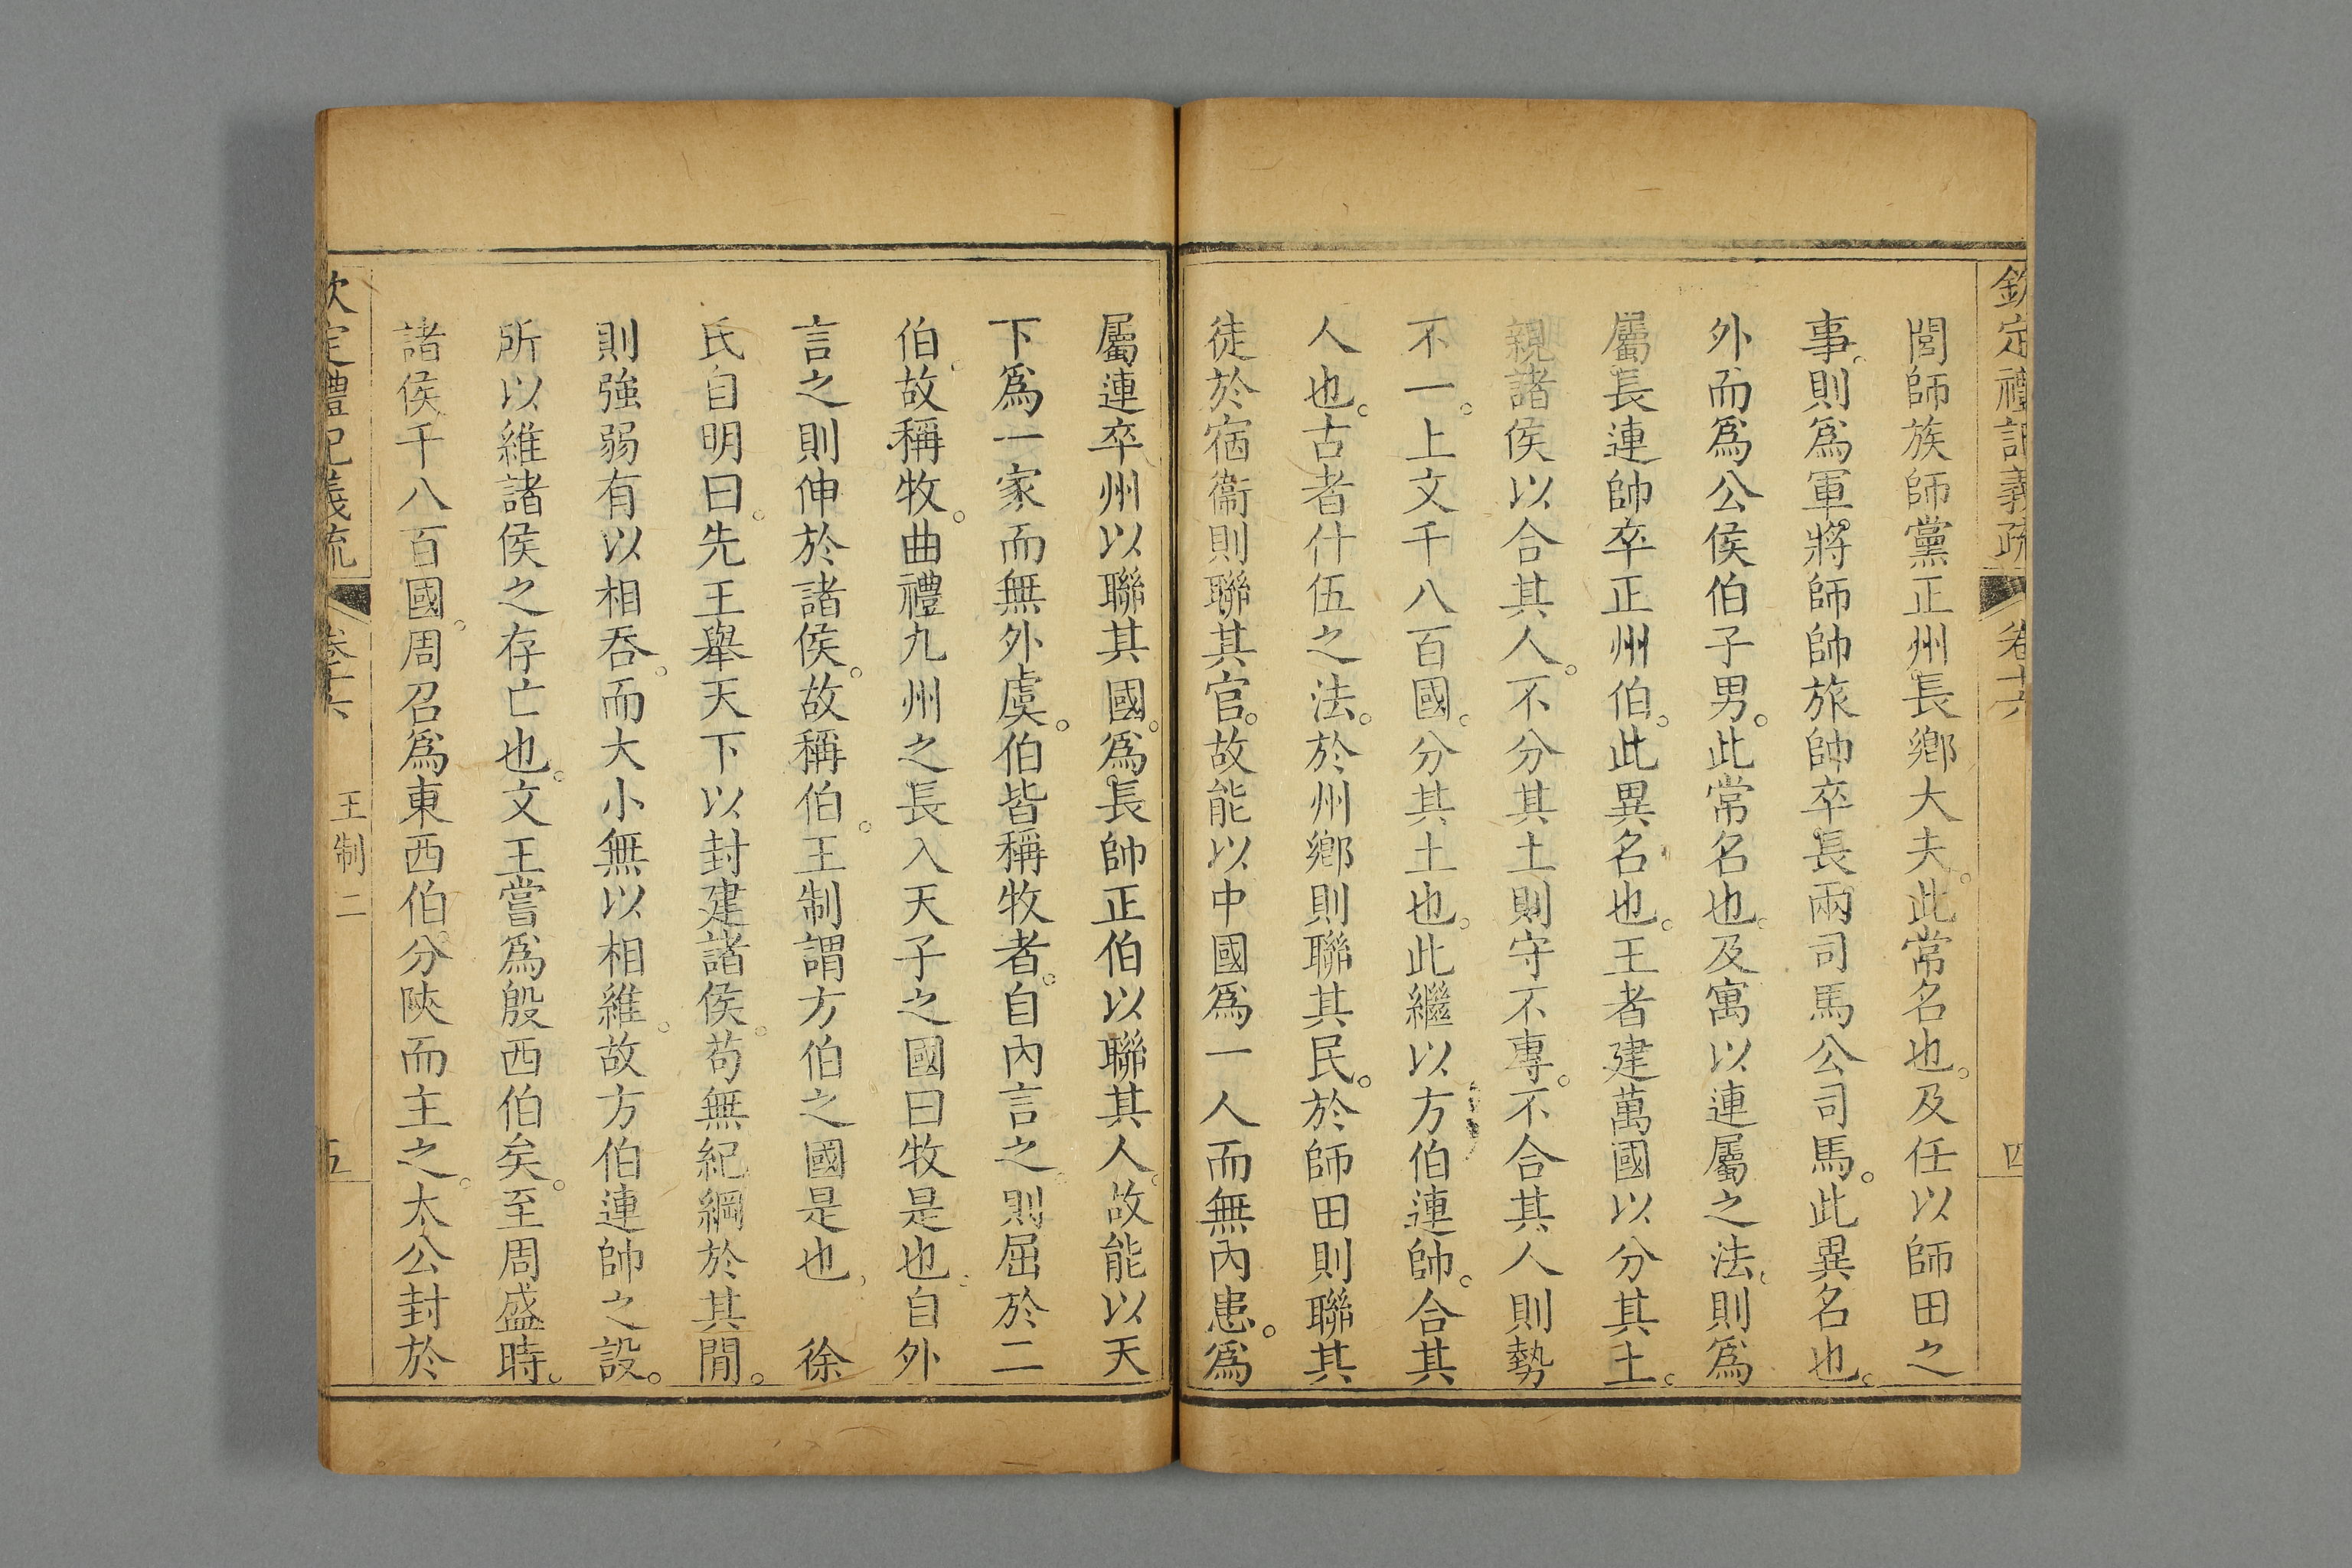 欽定禮記義疏 卷十六 四
閭師族師黨正州長鄉大夫。此常名也。及任以師田之
事。則爲軍將師帥旅帥卒長兩司馬公司馬。此異名也。
外而爲公侯伯子男。此常名也。及寓以連屬之法。則爲
屬長連帥卒正州伯。此異名也。王者建萬國以分其土。
親諸侯以合其人。不分其土則守不專。不合其人則勢
不一。上文千八百國。分其土也。此繼以方伯連帥。合其
人也。古者什伍之法。於州鄉則聯其民。於師田則聯其
徒於宿衞則聯其官。故能以中國爲一人而無內患。爲
屬連卒州以聯其國。爲長帥正伯以聯其人。故能以天
下爲一家而無外虞。伯皆稱牧者。自內言之。則屈於二
伯。故稱牧。曲禮九州之長入天子之國曰牧是也。自外
言之則伸於諸侯。故稱伯。王制謂方伯之國是也。 徐
氏自明曰。先王舉天下以封建諸侯。苟無紀綱於其閒。
則強弱有以相吞。而大小無以相維。故方伯連帥之設。
所以維諸侯之存亡也。文王嘗爲殷西伯矣。至周盛時。
諸侯千八百國。周召爲東西伯。分陝而主之。太公封於
欽定禮記義疏 卷十六 王制二 五